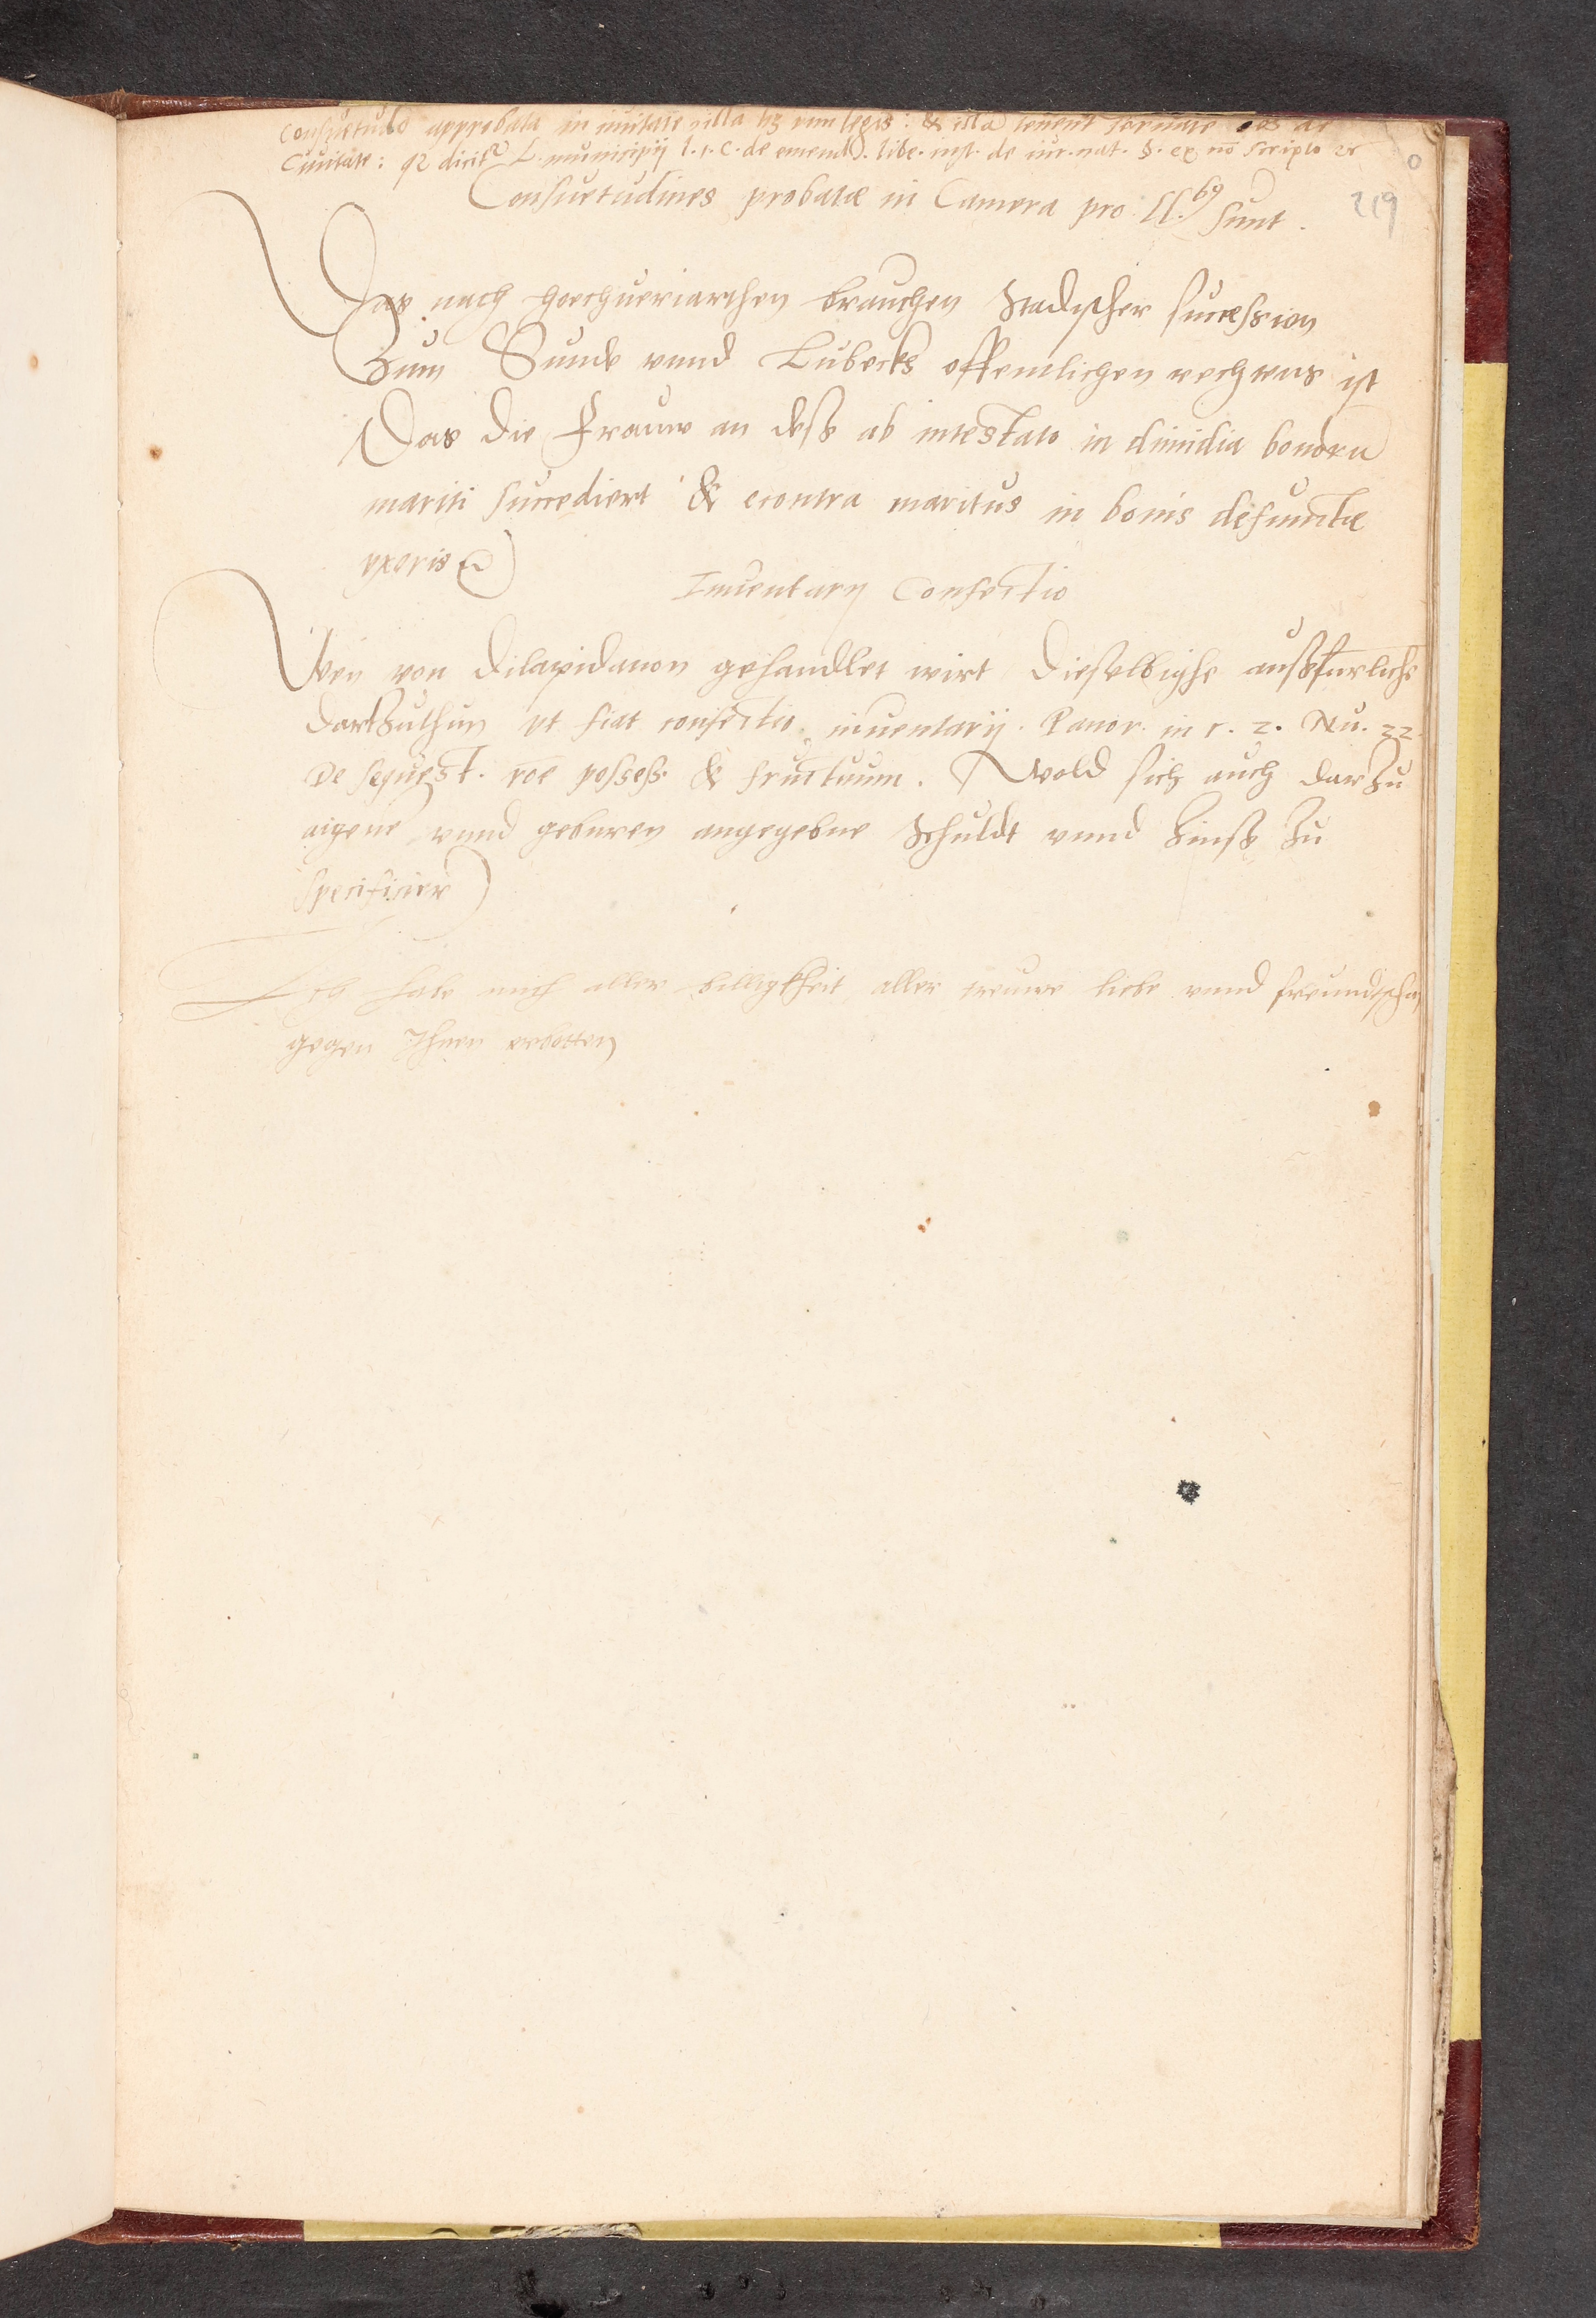 Consuetudo approbata in ciuitate villa hz vim legis: & illa tenent seruare oēs de
Ciuitate: qz dicitr L. municipij l. 1. C. de emend. libe. inst. de iur. nat. §. ex nō scripto zc
Consuetudines probatæ in Camera pro ll.bg sunt.
0
219
Das nach hochueriarthen brauchen Stadischer succession
Zum Sunde vnnd Lubecks offentlichen rechtens ist
Das die Frauw an deß ab intestato in dimidia bonoru
mariti succediert & econtra maritus in bonis defunctæ
vxoris
Inuentarij Confectio
Wen von dilapidation gehandlet wirt dieselbighe außfurliche
dartzuthun vt fiat confectio inuentarij. Panor. in c. 2. Nu. 22.
De sequest. roē possess. & fructuum. Wold sich auch darzu
aigene vnnd geburen angegebne Schuldt vnnd Zinß zu
specificier
Ich habe mich aller billigkheit aller treuwe liebe vnnd freundtscha
gegen Ihnen erbotten